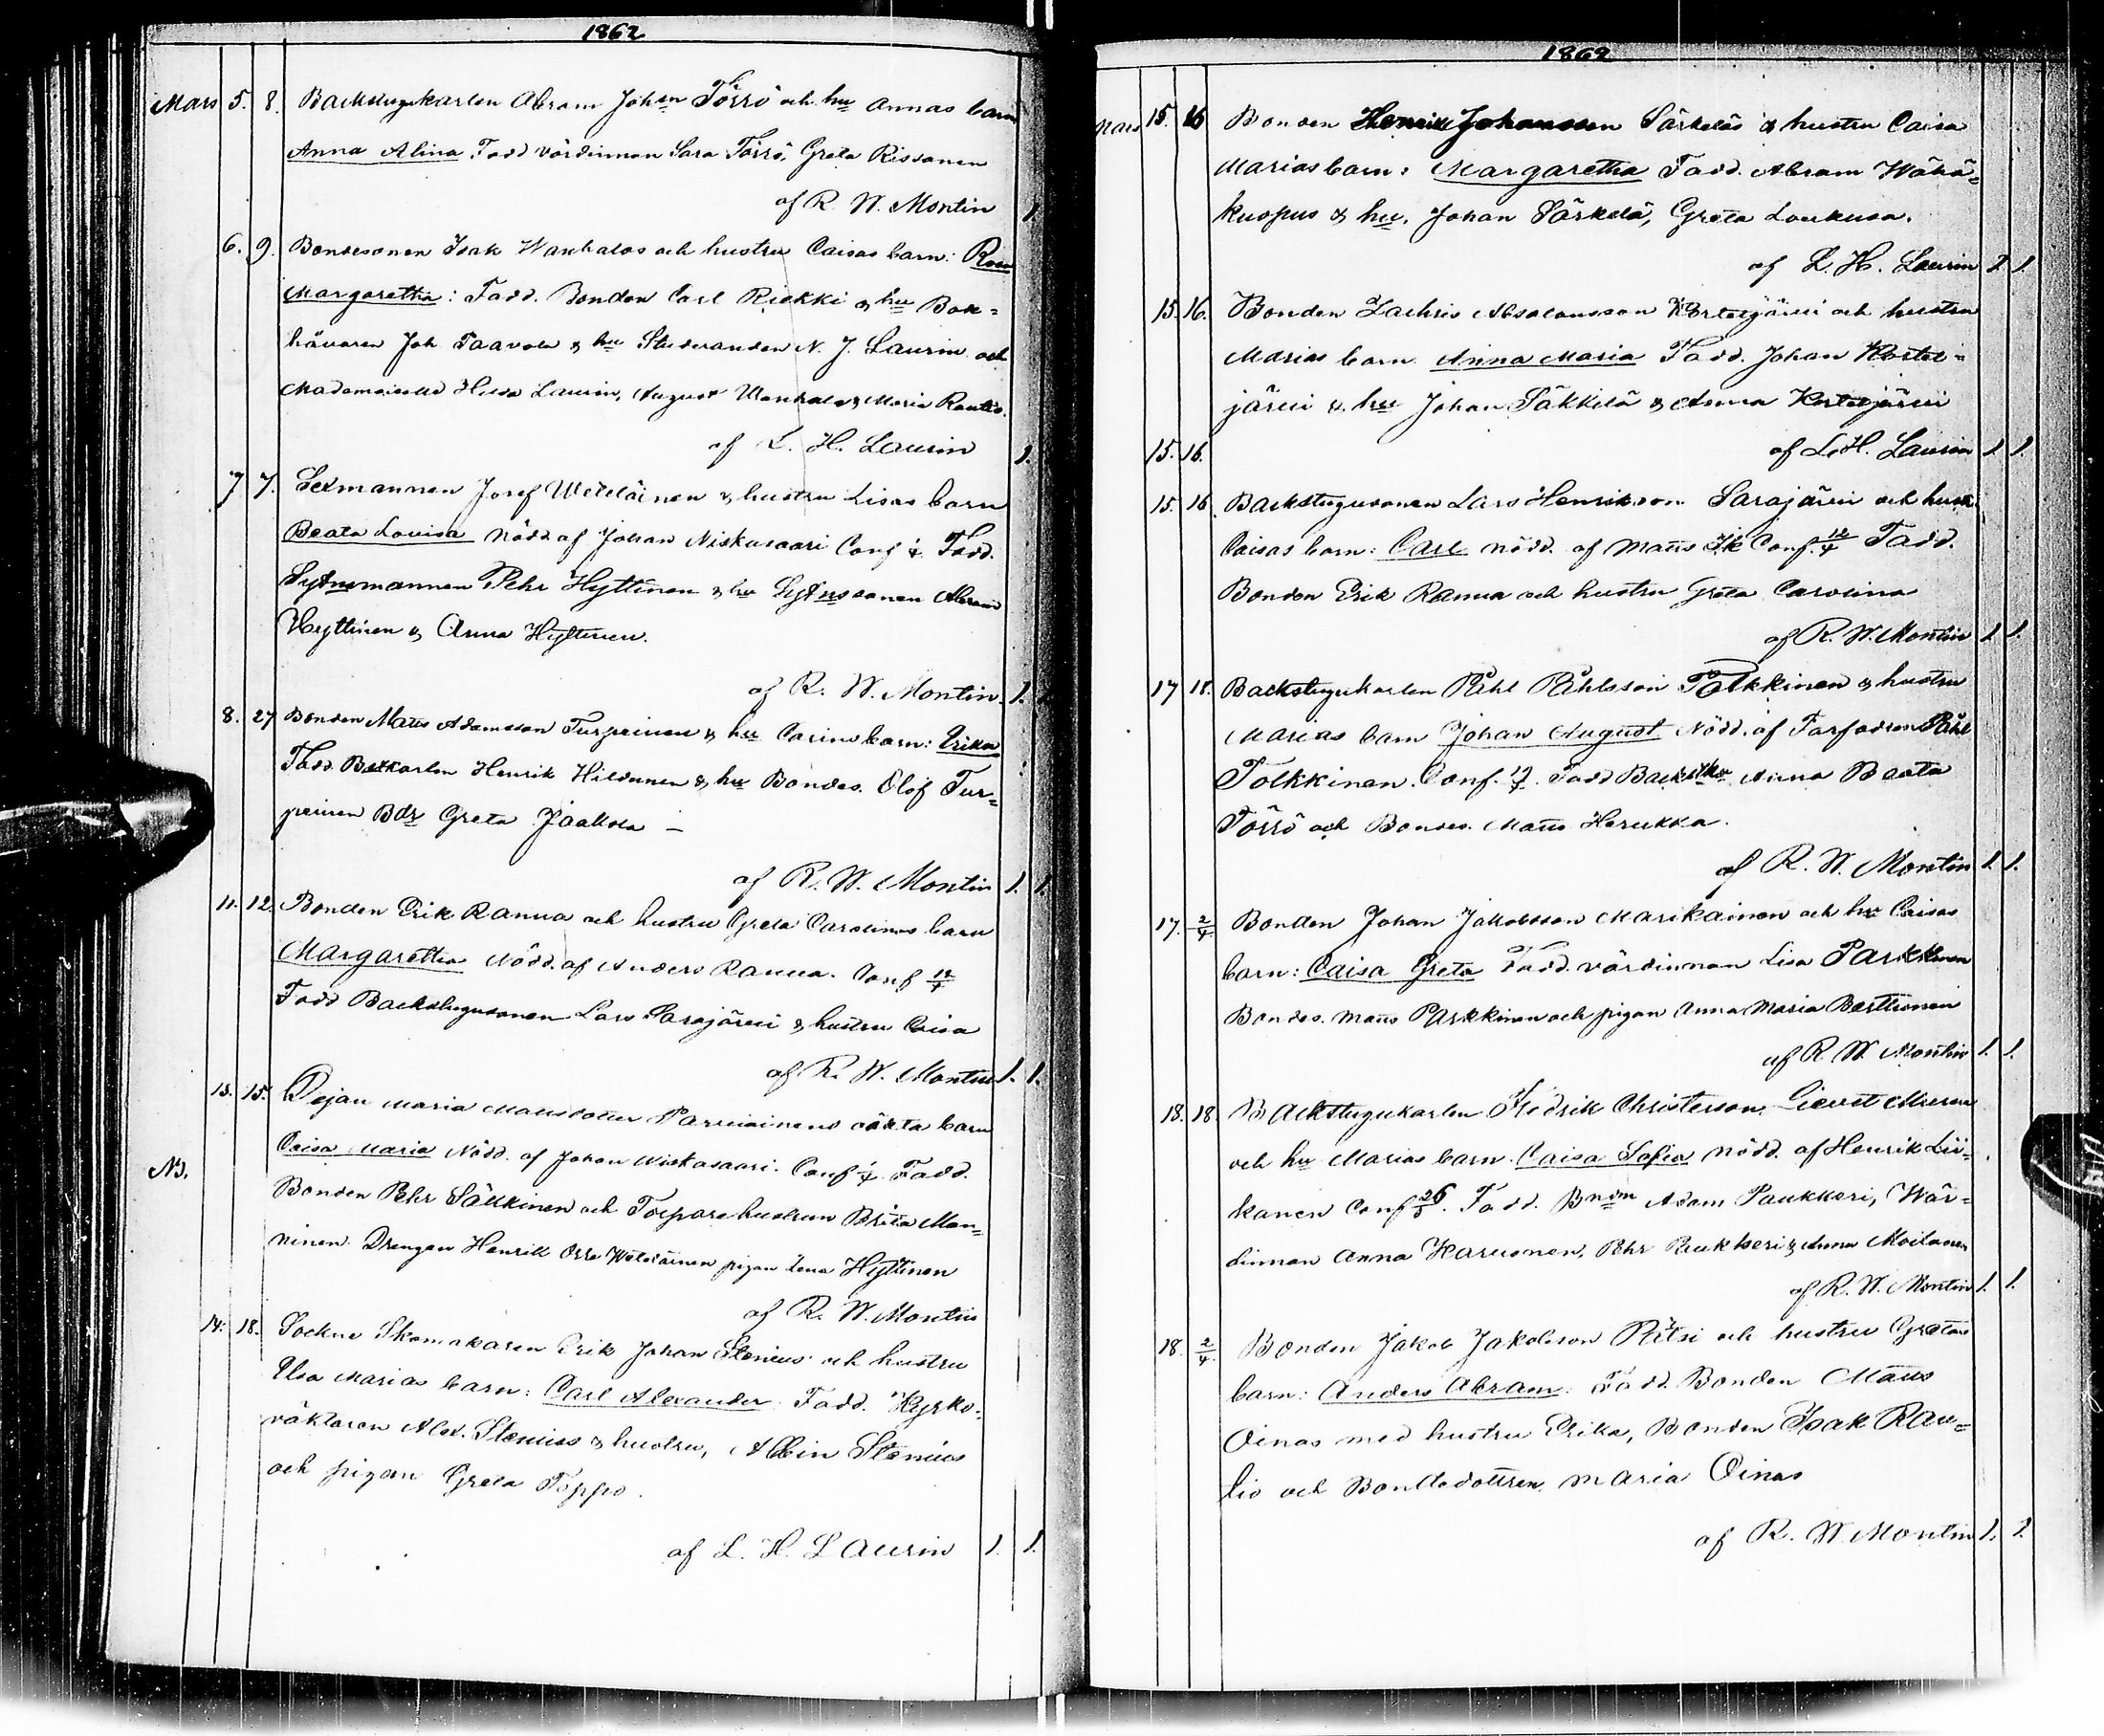 1862
Mars 5. 8. Backstugukarlen Abram Johan Törrö och hu Annas barn
Anna Alina Fadd värdinnan Sara Törrö, Greta Rissanen
af R. W. Montin 1.
6. 9. Bondesonen Isak Wanhalas och hustru Caisas barn: Rosa
Margaretha: Fadd. Bonden Carl Riekki & hu Bok=
hållaren Joh Taavola & hu Studeranden N. J. Laurin och
Mademoiselle Hilda Laurin, August Wanhala & Maria
af L. H. Laurin 1.
7 7. Sexmannen Josef Weteläinen & hustru Lisas barn
Beata Lovisa Nödd af Johan Niskasaari Conf Fadd.
Sytnemannen Pehr Hyttinen & hu Sytnssonen Abram
Hyttinen & Anna Hyttinen.
af R. W. Montin. 1.
8. 27 Bonden Matts Adamsson Turpeinen & hu Carins barn: Erika
Fadd. Henrik Hildunen & hu Bondes. Olof Tur=
peinen Bdr Greta Jaakola –
af R. W. Montin 1. 1.
11. 12. Bonden Erik Ranua och hustru Greta Carolinas barn
Margaretha Nödd. af Anders Ranua. Conf 12/4
Fadd Backstugusonen Lars Sarajärvi & hustru Caisa
af R. W. Montin 1. 1.
13. 15. Pigan Maria Mattsdotter Parviainens oäkta barn
N). Caisa Maria Nödd. af Johan Niskasaari. Conf Fadd.
Bonden Pehr Säkkinen och Torpare hustrun Brita Man=
ninen Drengen Henrik Orre Weteläinen pigan Lena Hyttinen
af R. W. Montin
14. 18. Sockne Skomakaren Erik Johan Stenius och hustru
Elsa Marias barn: Carl Alexander Fadd. Kyrko=
väktaren Alex. Stenius & hustru, Albin Stenius
och pigan Greta Toppo.
af L. H. Laurin 1. 1.
1862
Mars 15. 16 Bonden Henrik Johansson Särkeläs & hustru Caisa
Marias barn: Margaretha Fadd. Abram Wähä=
kuopus & hu. Johan Särkelä, Greta Loukusa.
af L. H. Laurin 1 1.
15. 16. Bonden Zachris Absalonsson Kortetjärvi och hustru
Marias barn Anna Maria Fadd. Johan Kortet=
järvi & hu Johan Säkkilä & Anna Kortetjärvi
15. 16. af L. H. Laurin 1 1.
15. 16. Backstugusonen Lars Henrikson Sarajärvi och hustru
Caisas barn: Carl nödd. af Matts Conf. 12/4 Fadd.
Bonden Erik Ranua och hustru Greta Carolina
af R. W. Montin 1 1.
17 18. Backstugukarlen Påhl Påhlsson Tolkkinen & hustru
Marias barn Johan August Nödd. af Farfadren Påhl
Tolkkinen. Conf. Fadd Anna Beata
Törrö och Bondes. Matts Herukka.
af R. W. Montin 1. 1.
17. 2/4. Bonden Johan Jakobsson Marikainen och hu Caisas
barn: Caisa Greta Fadd. värdinnan Lisa Parkkinen
Bondes. Matts Parkkinen och pigan Anna Maria Berttunen
af R. W. Montin 1. 1.
18. 18. Backstugukarlen Fredrik Christersson
och hu Marias barn Caisa Sofia nödd. af Henrik Lii=
kanen Conf 26/5. Fadd. Bndm Adam Paukkeri, Wär=
dinnan Anna Karvonen, Pehr Paukkeri & Anna Moilanen
af R. W. Montin 1. 1.
18. 2/4. Bonden Jakob Jakobson Ritsi och hustru Gretas
barn: Anders Abram: Fadd. Bonden Matts
Oinas med hustru Erika, Bonden Isak Rau=
tio och Bondedottren Maria Oinas
af R. W. Montin 1. 1.